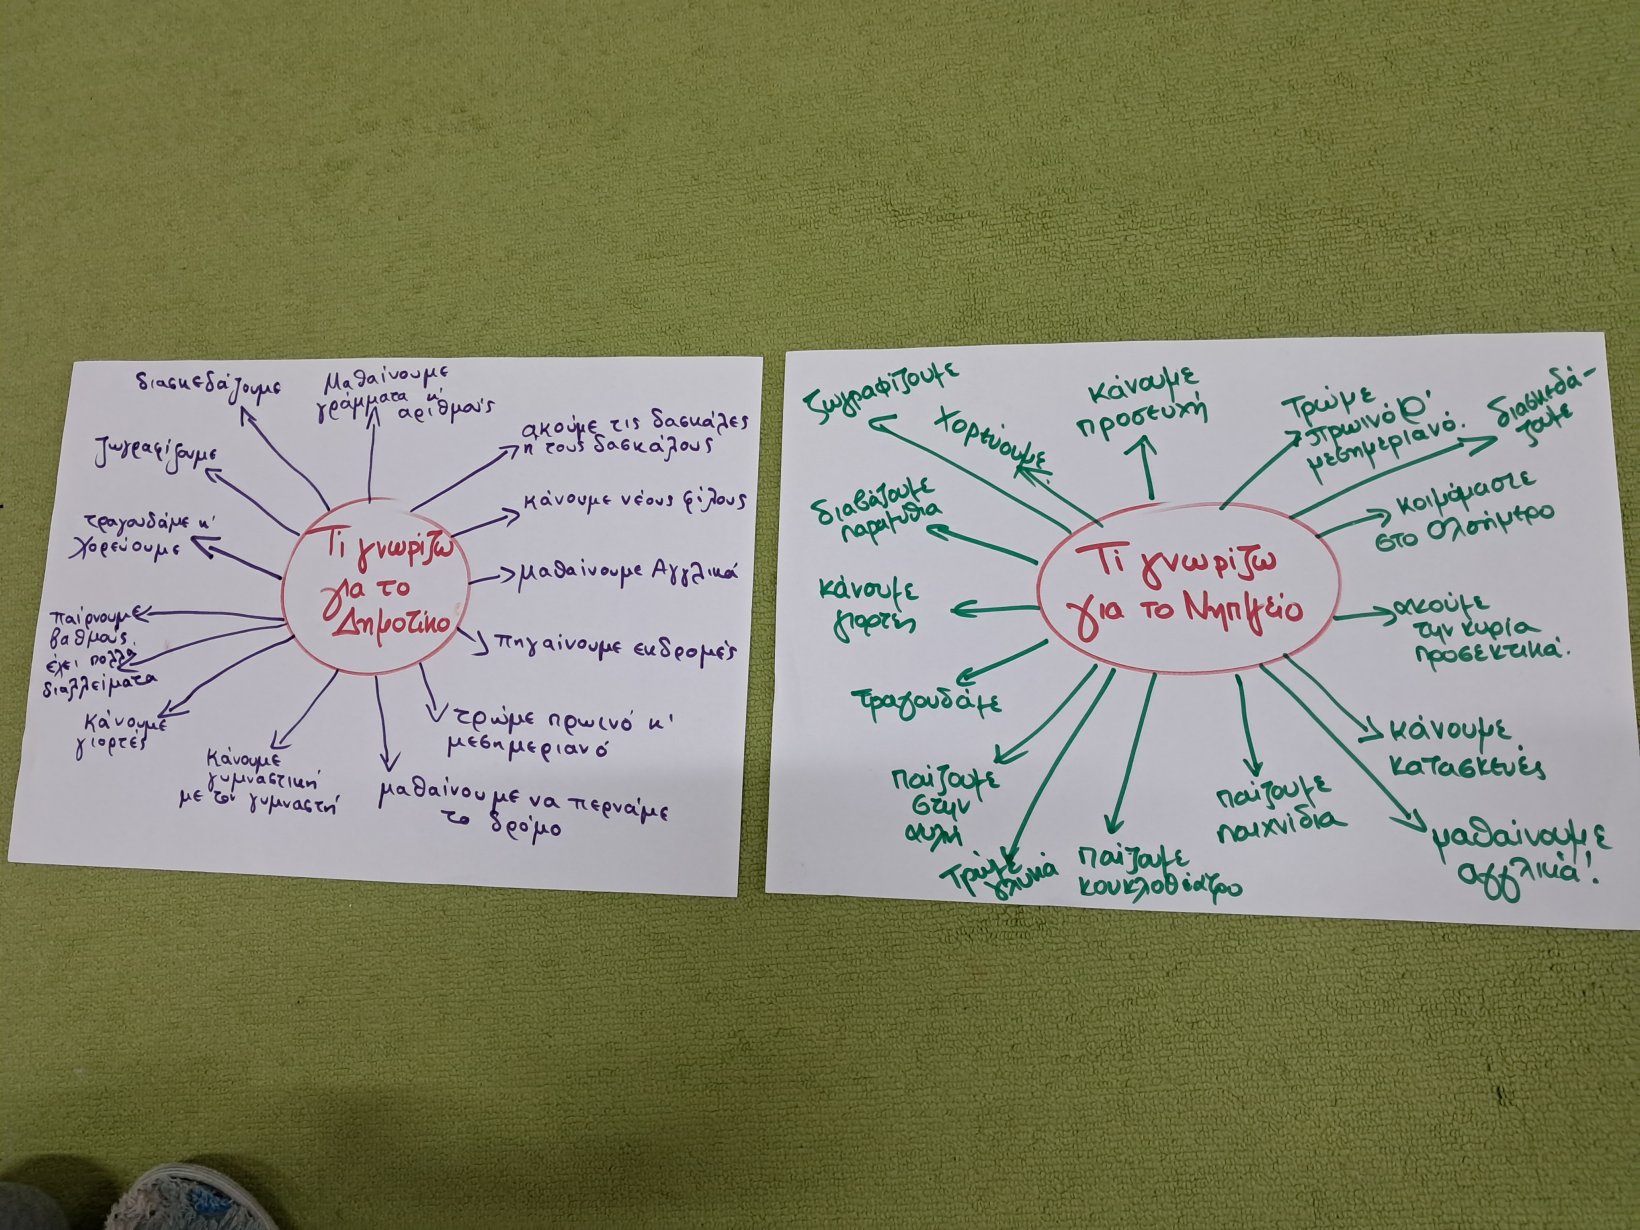 Τι γνωρίζω
για το
Δημοτικο
διασκεδάζουμε
Μαθαίνουμε
γράμματα κ'
αριθμούς
ακούμε τις δασκάλες
ή τους δασκάλους
κάνουμε νέους φίλους
μαθαίνουμε Αγγλικά
πηγαίνουμε εκδρομές
τρώμε πρωινό κ'
μεσημεριανό
μαθαίνουμε να περνάμε
το δρόμο
κάνουμε
γυμναστική
με τον γυμναστή
κάνουμε
γιορτές
έχει πολλά
διαλλείματα
παίρνουμε
βαθμούς
τραγουδάμε κ'
χορεύουμε
ζωγραφίζουμε
Τι γνωρίζω
για το Νηπιγείο
ζωγραφίζουμε
χορεύουμε
κάνουμε
προσευχή
Τρώμε
πρωινό κ'
μεσημεριανό.
διασκεδά-
ζουμε
κοιμόμαστε
στο Ολοήμερο
ακούμε
την κυρία
προσεκτικά.
κάνουμε
κατασκευές
μαθαίνουμε
αγγλικά!
παίζουμε
παιχνίδια
παίζουμε
κουκλοθέατρο
Τρώμε
γλυκά
παίζουμε
στην
αυλή
τραγουδάμε
κάνουμε
γιορτές
διαβάζουμε
παραμύθια